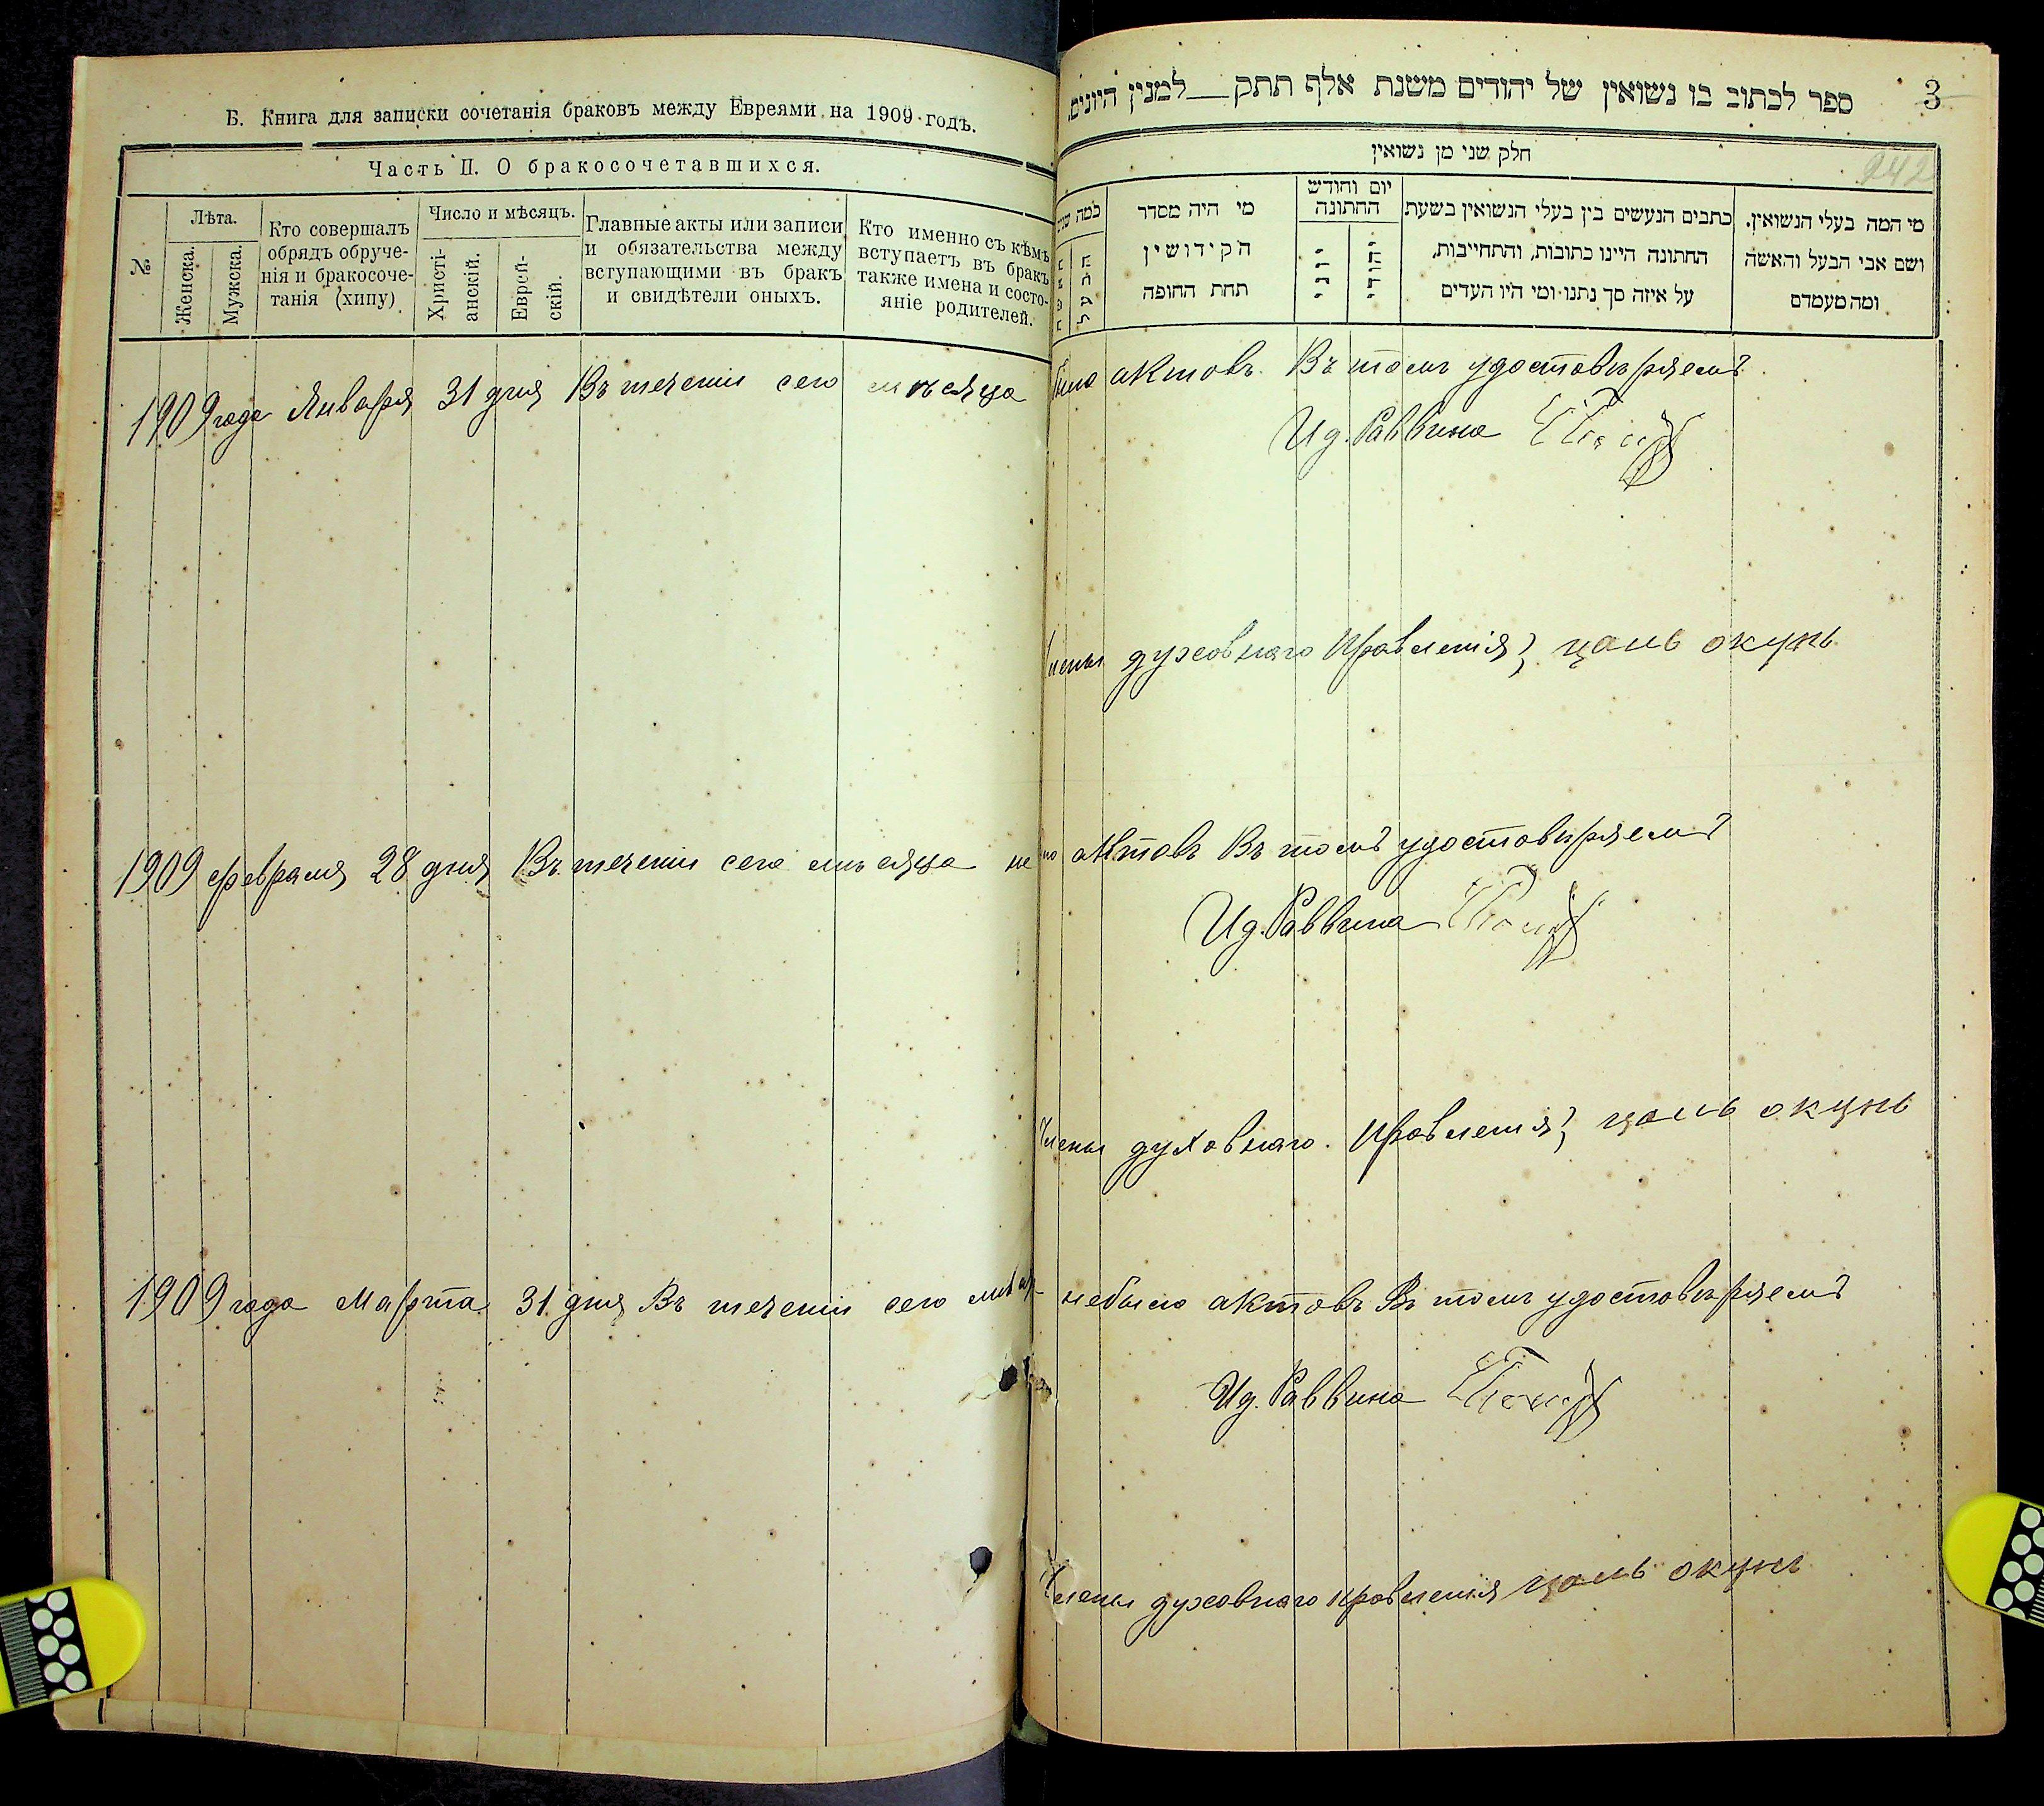 Б. Книга для записки сочетанія браковъ между Евреями на 1909 годъ.
Часть II. О бракосочетавшихся.
№
Лѣта.
Женска.
Мужска.
Кто совершалъ
обрядъ обруче-
нія и бракосоче-
танія (хипу)
Число и мѣсяцъ.
Христі-
анскій.
Еврей-
скій.
Главные акты или записи
и обязательства между
вступающими въ бракъ
и свидѣтели оныхъ.
Кто именно съ кѣмъ
вступаетъ въ бракъ
также имена и состо-
яніе родителей.
ספר לכתוב בו נשואין של יהודים משנת אלף תתק למנין היונים
3
242
חלק שני מן נשואין
מי המה בעלי הנשואין.
ושם אבי הבעל והאשה
ומה מעמדם
כתבים הנעשים בין בעלי הנשואין בשעת
החתונה היינו כתובות, והתחייבות,
על איזה סך נתנו ומי היו העדים
יום וחודש
החתונה
יהודי
יוני
מי היה מסדר
הקידושין
תחת החופה
כמה
1909 года Января 31 дня Въ теченіи сего мѣсяца было актовъ. Въ томъ удостовѣряемъ
Ид. Раввина
Члены духовнаго Правленія; цаль окунь
1909 февраля 28 дня Въ теченіи сего мѣсяца не актовъ Въ томъ удостовѣряемъ
Ид. Раввина
Члены духовнаго Правленія; цаль окунь
1909 года Марта 31 дня Въ теченіи сего небыло актовъ Въ томъ удостовѣряемъ
Ид. Раввина
Члены духовнаго правленія цаль окунь